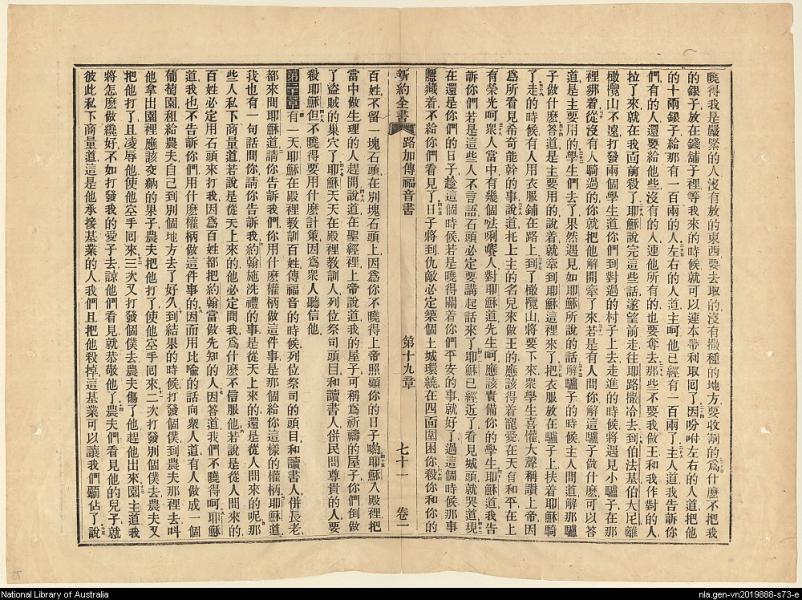 曉得我是嚴緊的人沒有放的東西要去取的沒有撒種的地方要收割的爲什麽不把我
的銀子放在錢舖子裡等我來的時候就可以連本帶利取囘了因吩咐左右的人道把他
的十兩銀子給那有一百兩的人左右的人道主呵他已經有一百兩了主人道我告訴你
們有的人還要給他些沒有的人連他所有的也要奪去那些不要我做王和我作對的人
拉了來就在我面前殺了耶穌說完這些話遂望前走往耶路撒冷去到伯法基伯大尼離
橄欖山不遠打發兩個學生道你們到對過的村子上去走進的時候將遇見小驢子在那
裡綁着從沒有人騎過的你就把他解開牽了來若是有人問你解這驢子做什麽可以答
道是主要用的學生們去了果然遇見如耶穌所說的話解驢子的時候主人問道解那驢
子做什麽答道是主要用的說着就牽到耶穌這裡來了把衣服放在驢子上扶着耶穌騎
了走的時候有人用衣服鋪在路上到了橄欖山將要下來衆學生喜懽大聲稱讚上帝因
爲所看見希奇能幹的事說道托上主的名兒來做王的應該得着寵愛在天有和平在上
有榮光呵衆人當中有幾個唎人對耶穌道先生呵應該責備你的學生耶穌道我告
訴你們若是這些人不言語石頭必定要講起話來了耶穌已經近了看見城頭就哭道現
在還是你們的日子趁這個時候若是曉得關着你們平安的事就好了過這個時候那事
體藏着不給你們看見了日子將到仇敵必定築個土城環繞在四面圍困你殺你和你的
新約全書 路加傳福音書 第十九章 七十一 卷一
百姓不留一塊石頭在別塊石頭上因爲你不曉得上帝照顧你的日子喲耶穌入殿裡把
當中做生理的人趕開說道在聖經裡上帝說道我的屋子可稱爲祈禱的屋子你們倒做
了盜賊的巢穴了耶穌天天在殿裡教訓人列位祭司頭目和讀書人併民間尊貴的人要
殺耶穌但不曉得要用什麽計策因爲衆人聽信他
第二十章 有一天耶穌在殿裡教訓百姓傳福音的時候列位祭司的頭目和讀書人併長老
都來問耶穌道請你告訴我們你用什麽權柄做這件事是那個給你這樣的權柄耶穌道
我也有一句話問你請你告訴我約翰施洗禮的事是從天上來的還是從人間來的呢那
些人私下商量道若說是從天上來的他必定問我爲什麽不信服他若說是從人間來的
百姓必定用石頭來打我因爲百姓都把約翰當做先知的人因答道我們不曉得呵耶穌
道我也不告訴你們用什麽權柄做這件事的因而用比喻的話向衆人道有人做成一個
葡萄園租給農夫自己到別個地方去了好久到結果的時候打發個僕到農夫那裡去叫
他拿出園裡應該交納的果子農夫把他打了使他空手囘來二次打發別個僕去農夫又
把他打了且凌辱他使他空手囘來三次又打發個僕去農夫傷了他趕他出來園主道我
將怎麽做纔好不如打發我的愛子去諒他們看見就恭敬他了農夫們看見他的兒子就
彼此私下商量道這是他承接基業的人我們且把他殺掉這基業可以讓我們覇佔了說
National Library of Australia
nla.gen-vn2019888-s73-e